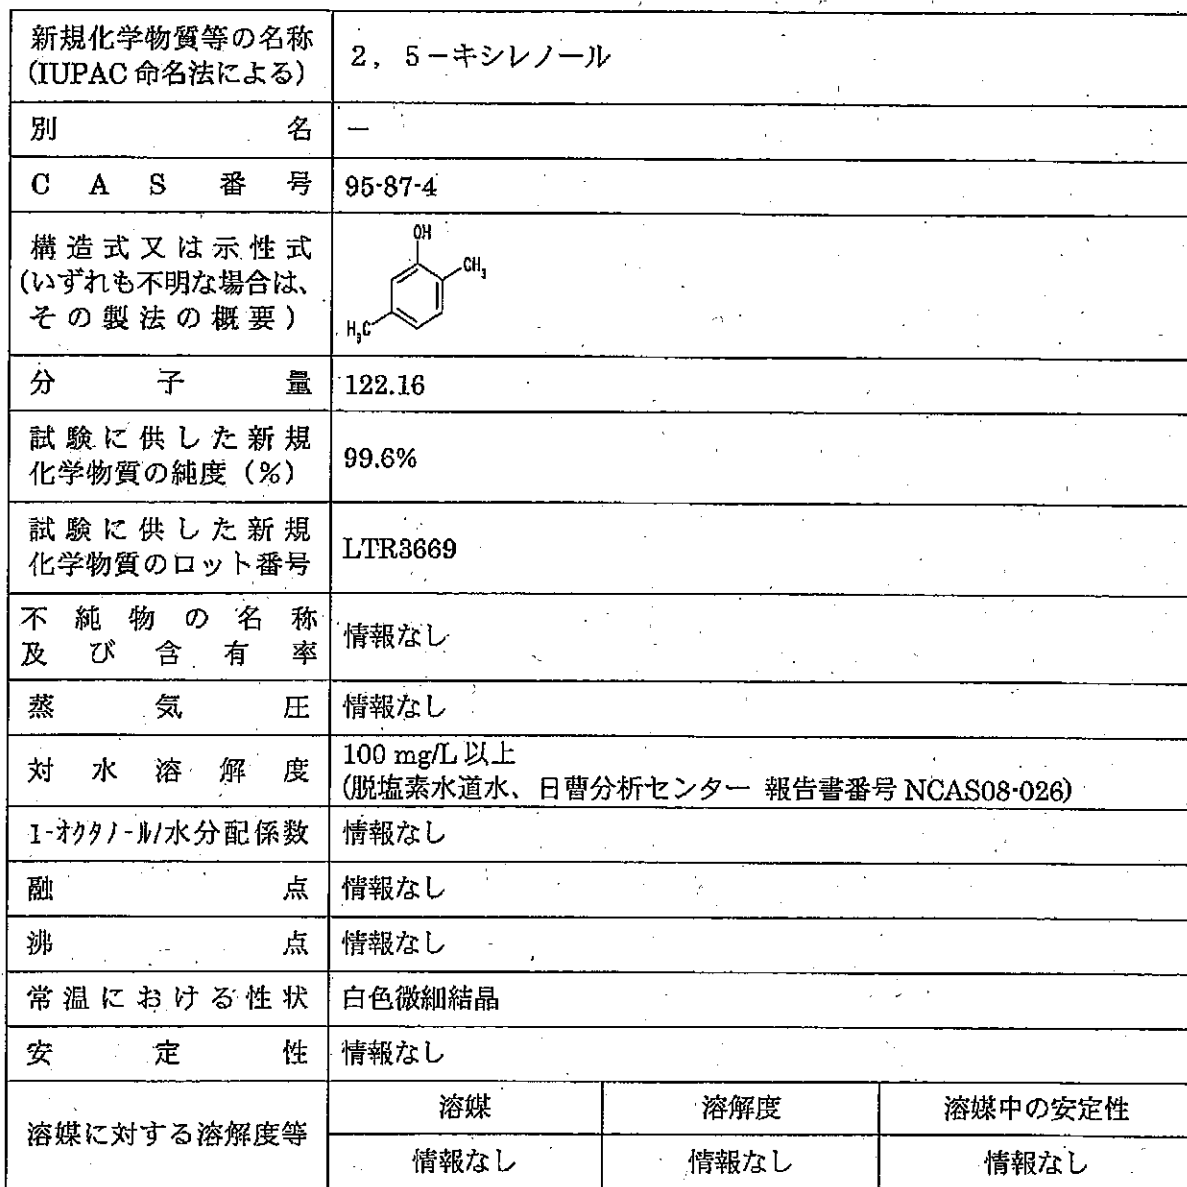 新規化学物質等の名称
(IUPAC 命名法による)
2，5－キシレノール
別名
－
CAS番号
95-87-4
構造式又は示性式
(いずれも不明な場合は、
その製法の概要)
OH
CH₃
H₃C
分子量
122.16
試験に供した新規
化学物質の純度（%）
99.6%
試験に供した新規
化学物質のロット番号
LTR3669
不純物の名称
及び含有率
情報なし
蒸気圧
情報なし
対水溶解度
100 mg/L 以上
(脱塩素水道水、日曹分析センター 報告書番号 NCAS08-026)
1-オクタノール/水分配係数
情報なし
融点
情報なし
沸点
情報なし
常温における性状
白色微細結晶
安定性
情報なし
溶媒に対する溶解度等
溶媒
溶解度
溶媒中の安定性
情報なし
情報なし
情報なし